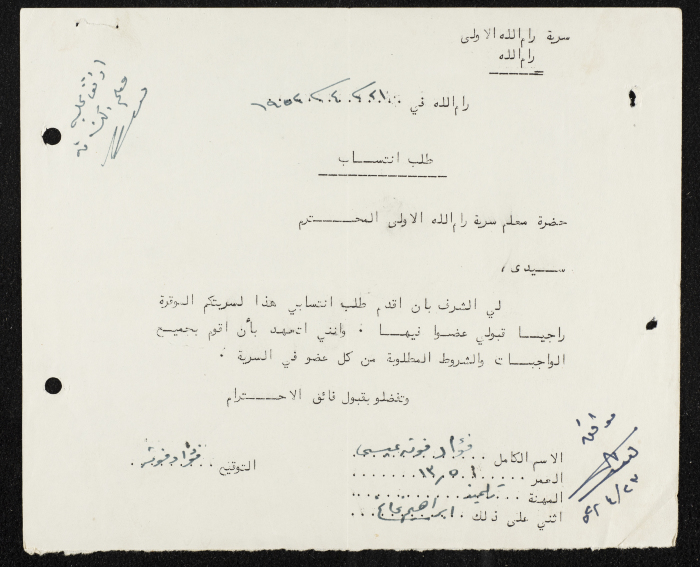 سرية رام الله الاولى
رام الله
رام الله في
طلب انتســـاب
حضرة معلم سرية رام الله الاولى المحـــترم
ســـيدى ،
لي الشرف بان اقدم طلب انتسابي هذا لسريتكم الموقرة
راجيـــا قبولي عضـــوا فيهـــا . وانني اتعهد بأن اقوم بجميـــع
الواجبـــات والشروط المطلوبة من كل عضو في السرية .
وتفضلو بقبول فائق الاحـــترام
الاسم الكامل . . . فؤاد فوته عيسى
العمر . . . . .
المهنة . . . تلميذ . . . . . . .
اثني على ذلك . ابراهيم . . .
التوقيع . . فؤاد فوته .
موافق